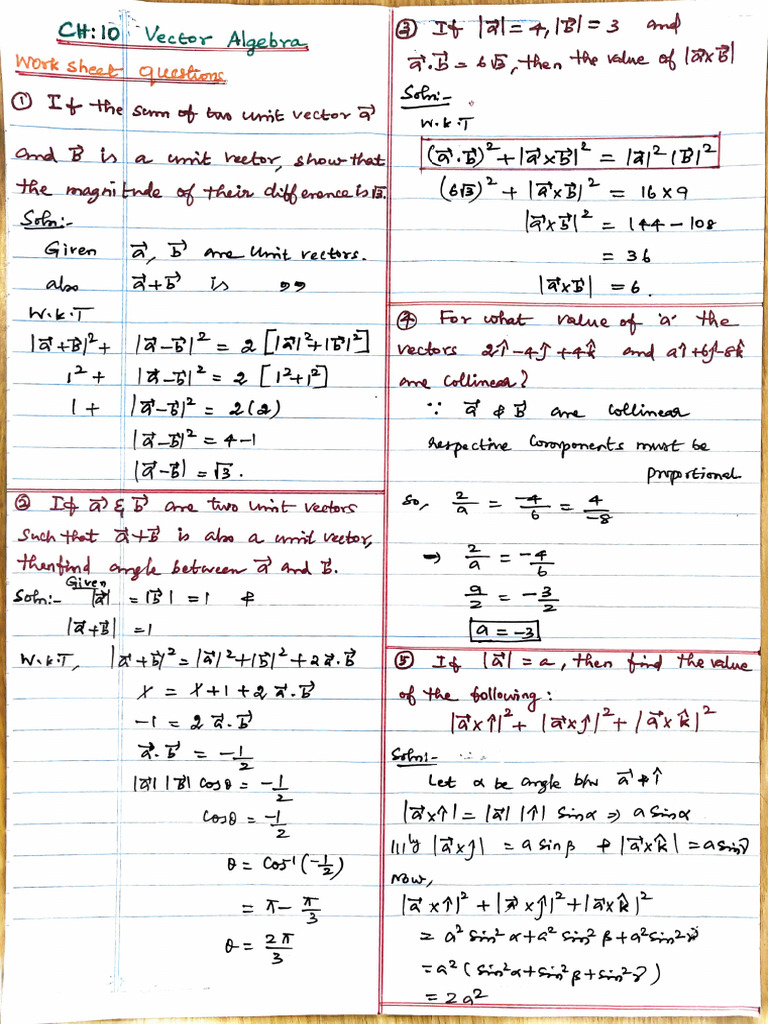 CH:10 Vector Algebra
Work sheet questions
① If the sum of two unit vector a⃗
and b⃗ is a unit vector, show that
the magnitude of their difference is √3.
Soln:-
Given a⃗, b⃗ are unit vectors.
also a⃗+b⃗ is ,,
W.K.T
|a⃗+b⃗|²+ |a⃗-b⃗|² = 2 [|a⃗|²+|b⃗|²]
1² + |a⃗-b⃗|² = 2 [1²+1²]
1 + |a⃗-b⃗|² = 2(2)
|a⃗-b⃗|² = 4-1
|a⃗-b⃗| = √3.
② If a⃗ & b⃗ are two unit vectors
such that a⃗+b⃗ is also a unit vector,
then find angle between a⃗ and b⃗.
Given
Soln:- |a⃗| = |b⃗| = 1 &
|a⃗+b⃗| = 1
W.K.T, |a⃗+b⃗|² = |a⃗|²+|b⃗|²+2a⃗.b⃗
1 = 1+1+2a⃗.b⃗
-1 = 2a⃗.b⃗
a⃗.b⃗ = -1/2
|a⃗| |b⃗| cosθ = -1/2
cosθ = -1/2
θ = cos⁻¹(-1/2)
= π - π/3
θ = 2π/3
③ If |a⃗| = 4, |b⃗| = 3 and
a⃗.b⃗ = 6√3, then the value of |a⃗×b⃗|
Soln:-
W.K.T
(a⃗.b⃗)² + |a⃗×b⃗|² = |a⃗|² |b⃗|²
(6√3)² + |a⃗×b⃗|² = 16×9
|a⃗×b⃗|² = 144-108
= 36
|a⃗×b⃗| = 6.
④ For what value of 'a' the
vectors 2î-4ĵ+4k̂ and aî+6ĵ-8k̂
are collinear?
∵ a⃗ & b⃗ are collinear
respective components must be
proportional
so, 2/a = -4/6 = 4/-8
→ 2/a = -4/6
a/2 = -3/2
a = -3
⑤ If |a⃗| = a, then find the value
of the following:
|a⃗×î|² + |a⃗×ĵ|² + |a⃗×k̂|²
Soln:-
Let α be angle b/w a⃗ & î
|a⃗×î| = |a⃗| |î| sinα ⇒ a sinα
|||ly |a⃗×ĵ| = a sinβ & |a⃗×k̂| = a sinγ
Now,
|a⃗×î|² + |a⃗×ĵ|² + |a⃗×k̂|²
= a² sin²α + a² sin²β + a² sin²γ
= a² (sin²α + sin²β + sin²γ)
= 2a²